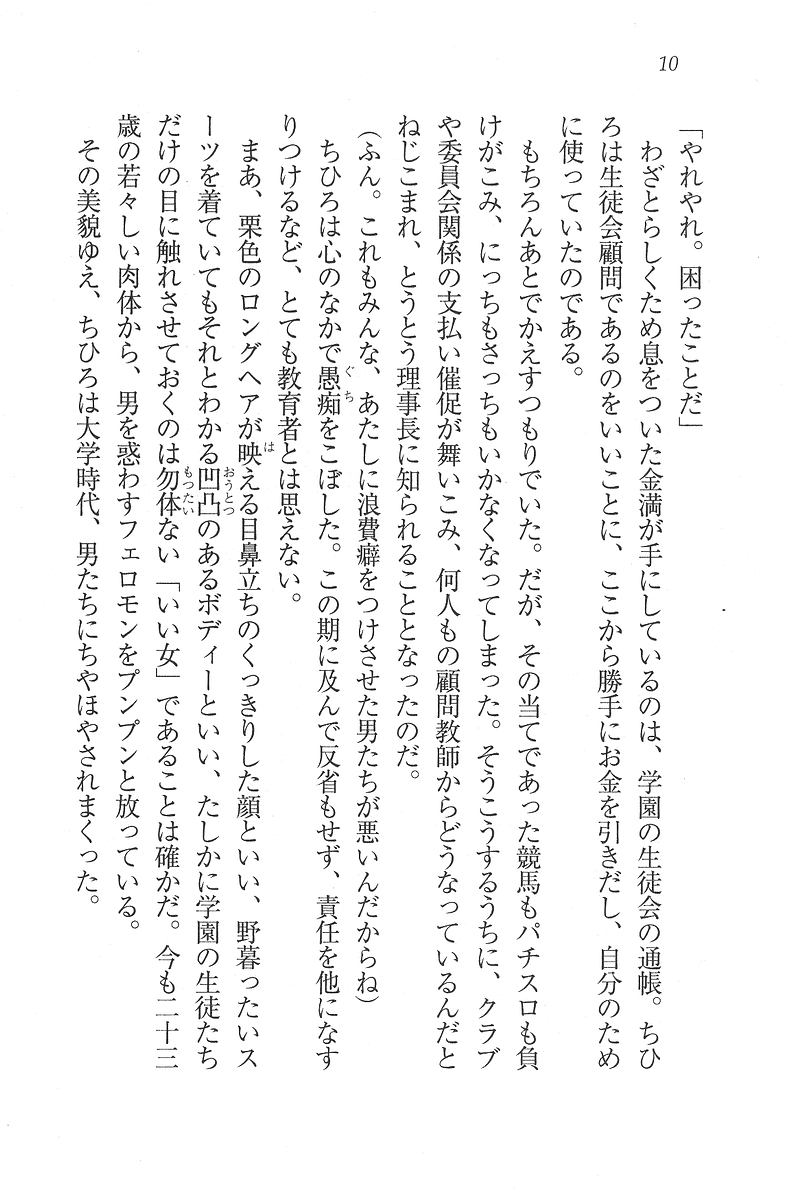 10
「やれやれ。困ったことだ」
　わざとらしくため息をついた金満が手にしているのは、学園の生徒会の通帳。ちひ
ろは生徒会顧問であるのをいいことに、ここから勝手にお金を引きだし、自分のため
に使っていたのである。
　もちろんあとでかえすつもりでいた。だが、その当てであった競馬もパチスロも負
けがこみ、にっちもさっちもいかなくなってしまった。そうこうするうちに、クラブ
や委員会関係の支払い催促が舞いこみ、何人もの顧問教師からどうなっているんだと
ねじこまれ、とうとう理事長に知られることとなったのだ。
（ふん。これもみんな、あたしに浪費癖をつけさせた男たちが悪いんだからね）
　ちひろは心のなかで愚痴をこぼした。この期に及んで反省もせず、責任を他になす
りつけるなど、とても教育者とは思えない。
　まあ、栗色のロングヘアが映える目鼻立ちのくっきりした顔といい、野暮ったいス
ーツを着ていてもそれとわかる凹凸のあるボディーといい、たしかに学園の生徒たち
だけの目に触れさせておくのは勿体ない「いい女」であることは確かだ。今も二十三
歳の若々しい肉体から、男を惑わすフェロモンをプンプンと放っている。
　その美貌ゆえ、ちひろは大学時代、男たちにちやほやされまくった。